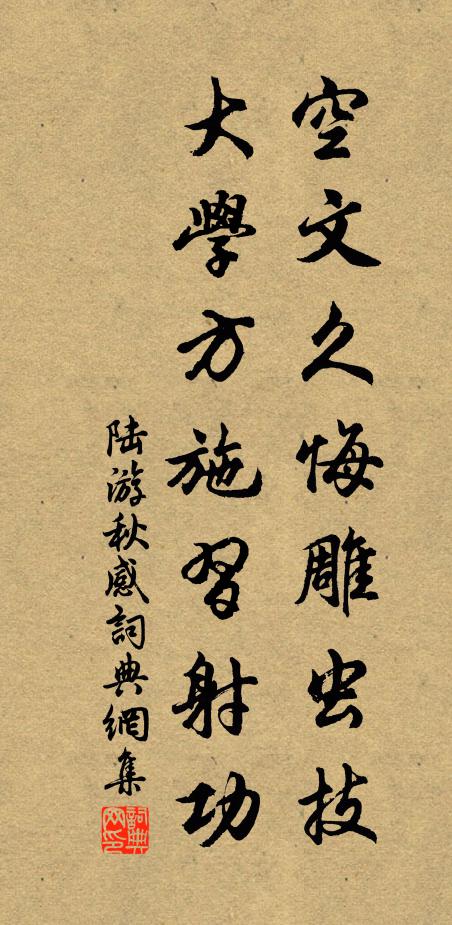 空文久悔雕虫技
大學方施習射功
陆游秋感詞典網集
詞典网印